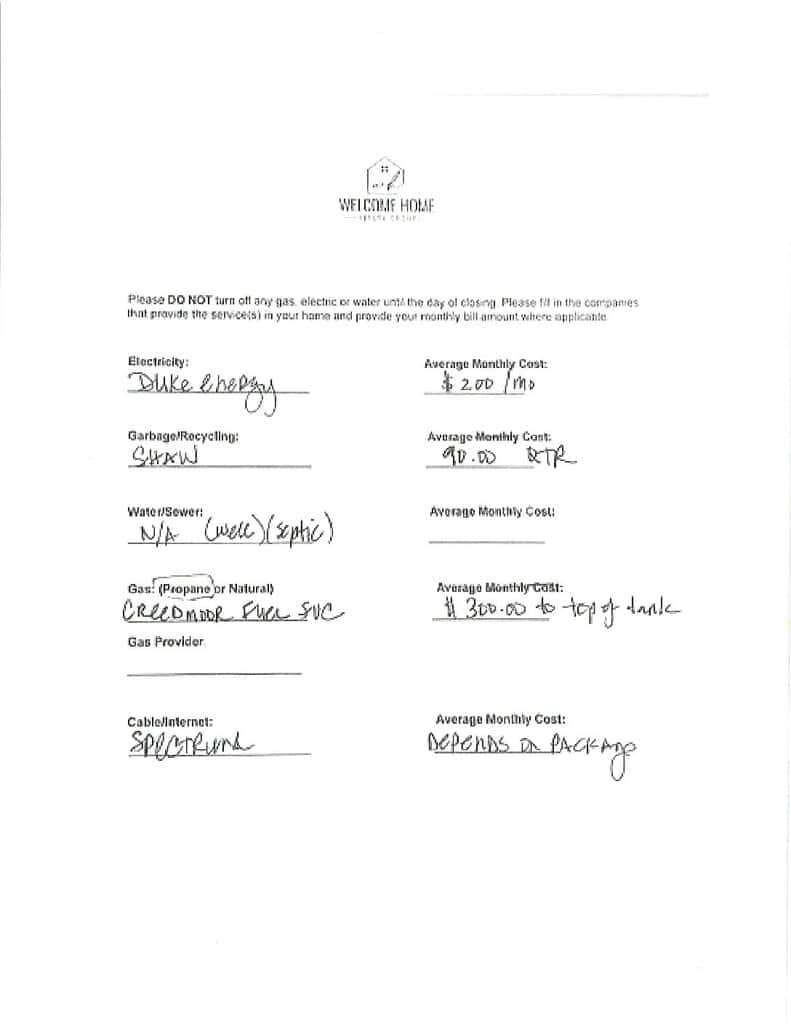 WELCOME HOME
REALTY GROUP
Please DO NOT turn off any gas, electric or water until the day of closing. Please fill in the companies
that provide the service(s) in your home and provide your monthly bill amount where applicable.
Electricity: Average Monthly Cost:
Duke Energy $200/mo
Garbage/Recycling: Average Monthly Cost:
SHAW 90.00 QTR
Water/Sewer: Average Monthly Cost:
N/A (well)(septic)
Gas: (Propane or Natural) Average Monthly Cost:
CREEDMOOR FUEL SVC $300.00 to top of tank
Gas Provider
Cable/Internet: Average Monthly Cost:
SPECTRUM DEPENDS ON PACKAGE